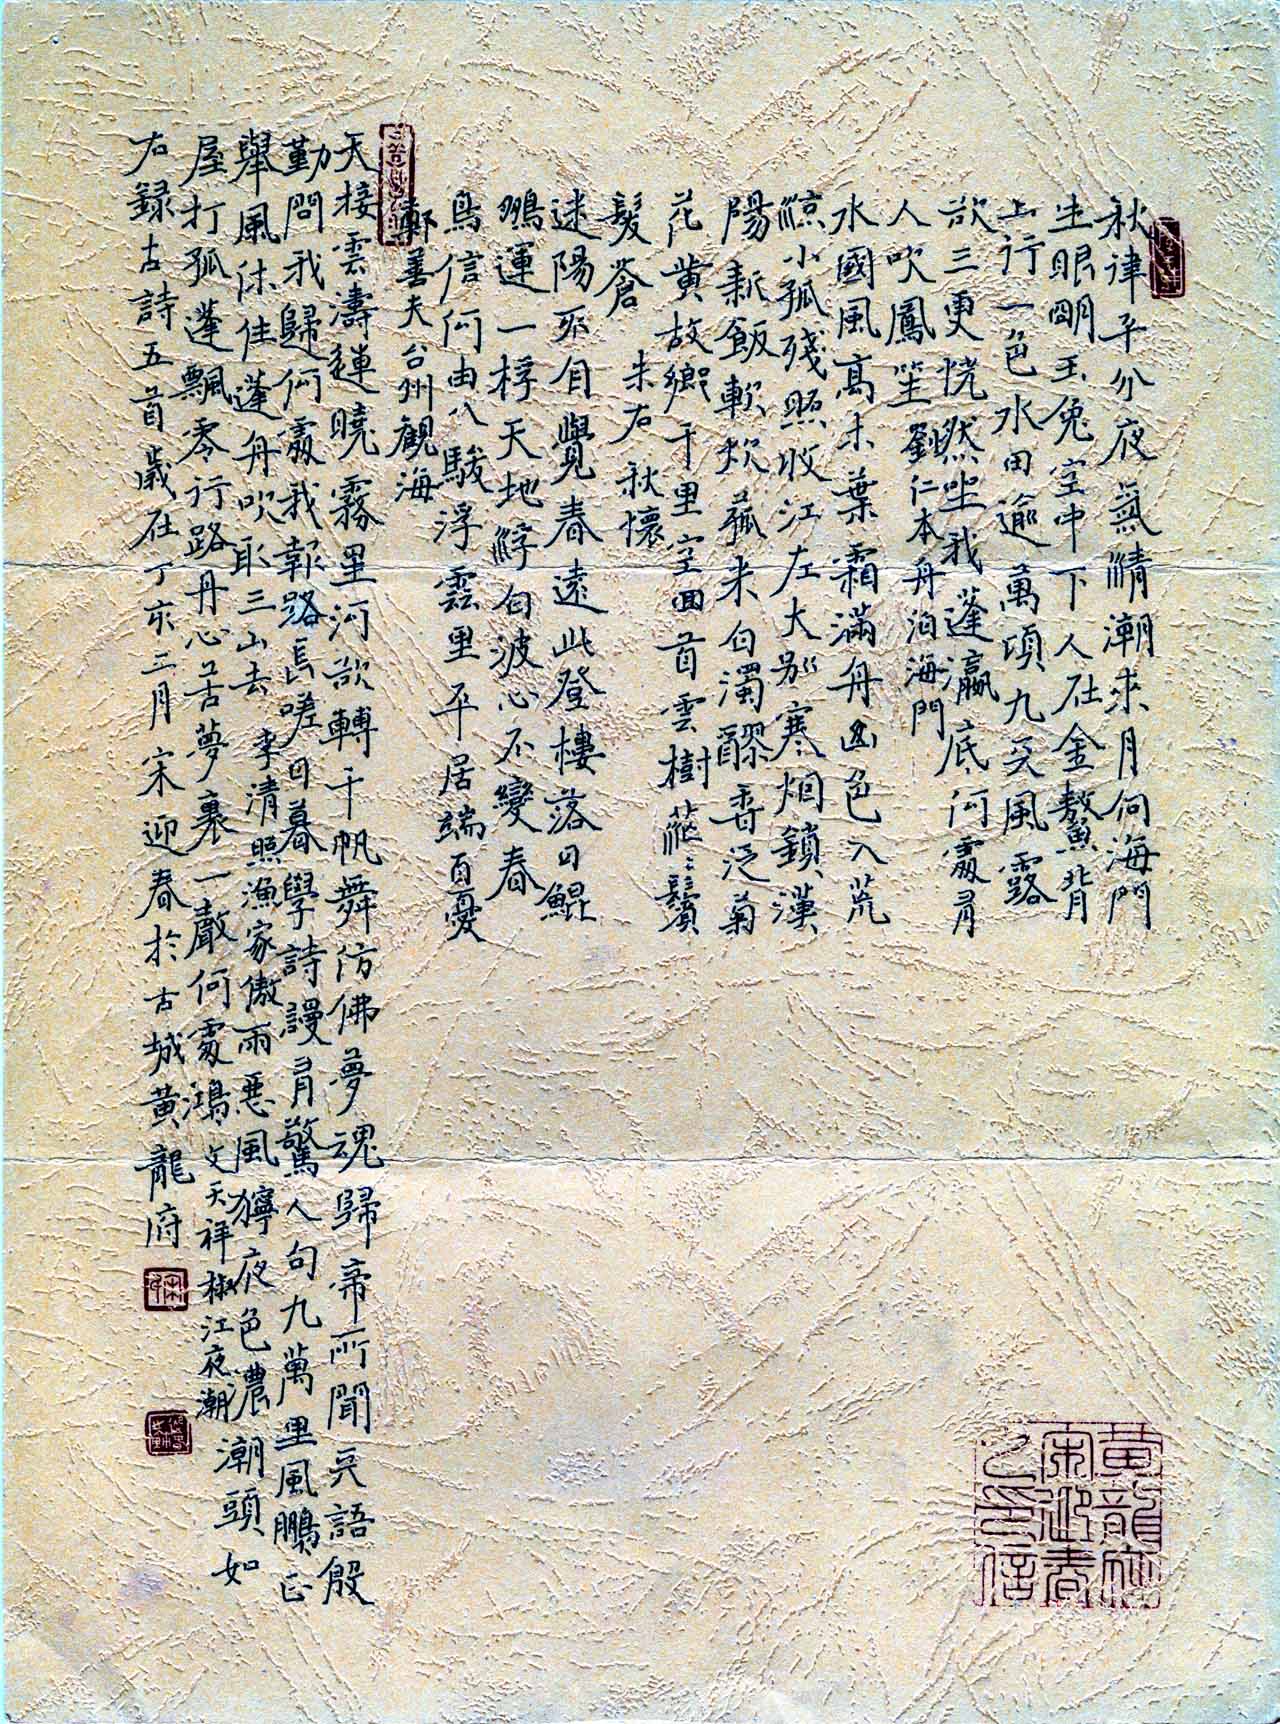 秋律平分夜氣清潮來月伺海門
生眼明玉兔空中下人在金鰲背
上行一色水田逾萬頃九天風露
欲三更恍然坐我蓬瀛底何處有
人吹鳳笙劉仁本舟泊海門
水國風高木葉霜滿舟幽色入荒
涼小孤殘照收江左大別寒烟鎖漢
陽新飯軟炊菰米白濁醪香泛菊
花黄故鄉千里空回首雲樹茫茫鬢
髮蒼 朱右 秋懷
迷陽不自覺春遠此登樓落日鯤
鵬運一桴天地浮白波心不變春
鳥信何由八駿浮雲里平居端百憂
鄭善夫台州觀海
天接雲濤連曉霧星河欲轉千帆舞仿佛夢魂歸帝所聞天語殷
勤問我歸何處我報路長嗟日暮學詩謾有驚人句九萬里風鵬正
舉風休住蓬舟吹取三山去 李清照漁家傲雨惡風獰夜色濃潮頭如
屋打孤蓬飄零行路丹心苦夢裏一聲何處鴻文天祥椒江夜潮
右録古詩五首歲在丁亥三月宋迎春於古城黄龍府
黄龍府
宋迎春
之印信